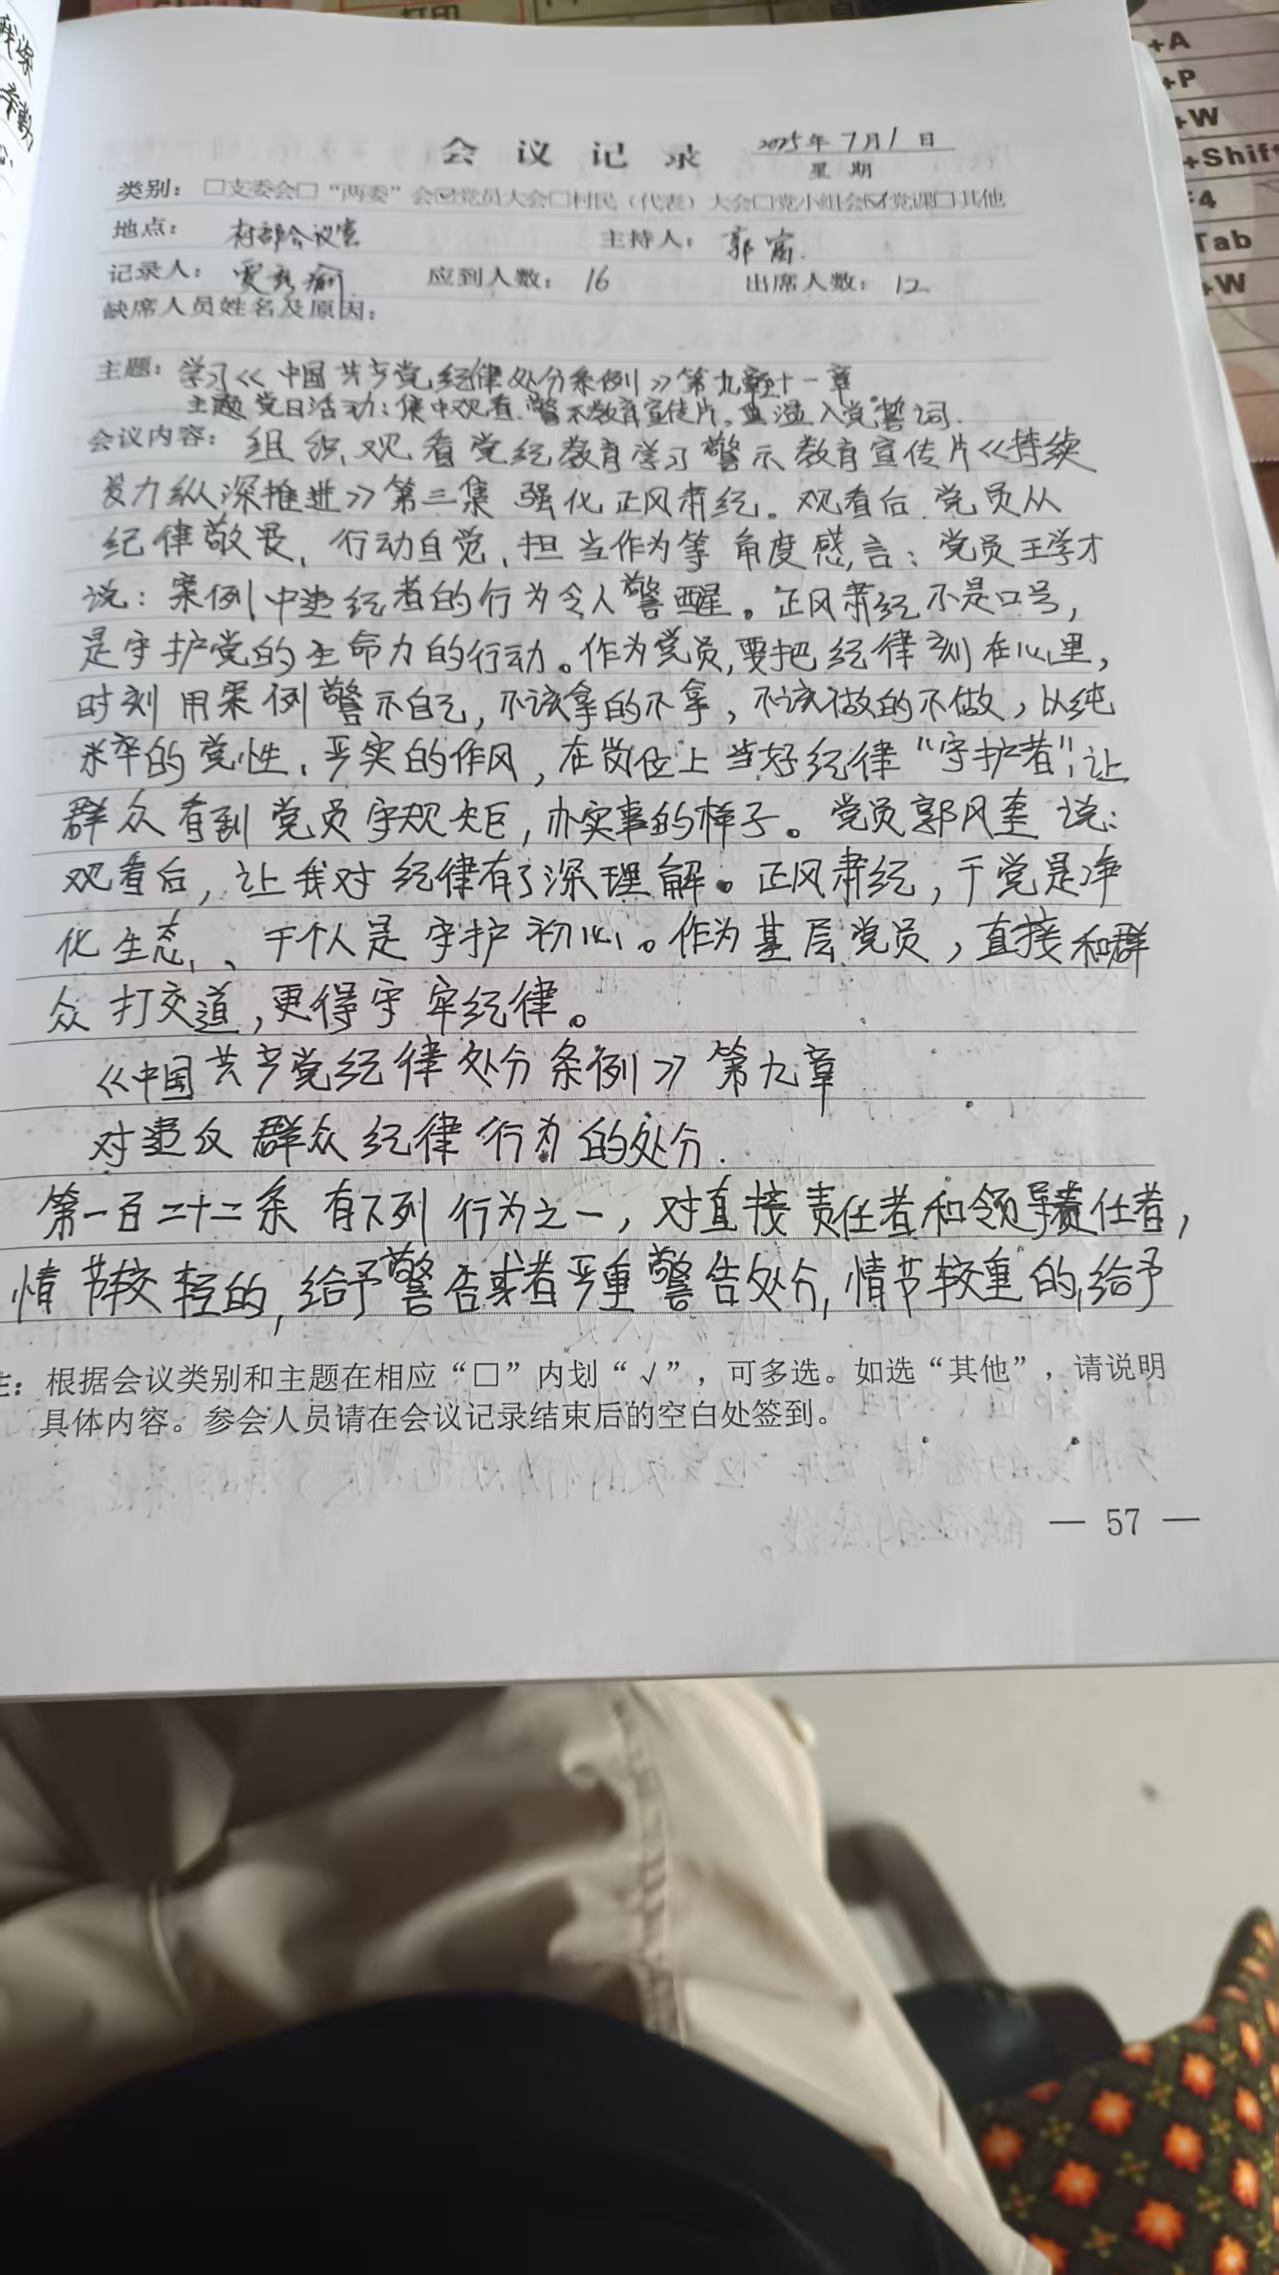 会议记录 2025年7月1日
星期
类别：□支委会□“两委”会☑党员大会□村民（代表）大会□党小组会☑党课□其他
地点： 村部会议室 主持人： 郭富
记录人： 应到人数： 16 出席人数： 12
缺席人员姓名及原因：
主题：学习《中国共产党纪律处分条例》第九章至十一章
主题党日活动：集中观看警示教育宣传片，重温入党誓词.
会议内容：组织观看党纪教育学习警示教育宣传片《持续
发力纵深推进》第三集 强化正风肃纪。观看后，党员从
纪律敬畏、行动自觉、担当作为等角度感言：党员王学才
说：案例中违纪者的行为令人警醒。正风肃纪不是口号，
是守护党的生命力的行动。作为党员，要把纪律刻在心里，
时刻用案例警示自己，不该拿的不拿，不该做的不做，以纯
粹的党性、严实的作风，在岗位上当好纪律“守护者”，让
群众看到党员守规矩，办实事的样子。党员郭风奎说：
观看后，让我对纪律有了深理解。正风肃纪，于党是净
化生态、于个人是守护初心。作为基层党员，直接和群
众打交道，更得守牢纪律。
《中国共产党纪律处分条例》第九章
对违反群众纪律行为的处分.
第一百二十二条 有下列行为之一，对直接责任者和领导责任者，
情节较轻的，给予警告或者严重警告处分，情节较重的，给予
注：根据会议类别和主题在相应“□”内划“√”，可多选。如选“其他”，请说明
具体内容。参会人员请在会议记录结束后的空白处签到。
— 57 —
打印
+A
+P
+W
+Shift
F4
Tab
+W